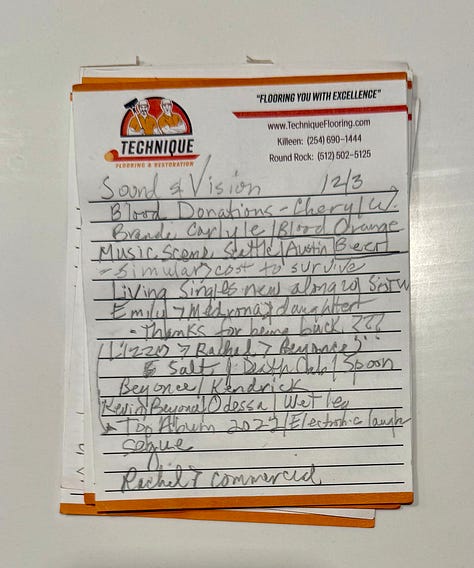 "FLOORING YOU WITH EXCELLENCE"
www.TechniqueFlooring.com
Killeen: (254) 690-1444
Round Rock: (512) 502-5125
TECHNIQUE
FLOORING & RESTORATION
Sound & Vision 12/3
Blood Donations - Cheryl W.
Brande Carlyle / Blood Orange
Music Scene Seattle / Austin
- Simular > cost to survive
Living Singles new along
Emily > Medrona > daughter
- Thanks for being back ???
Lizzo > Rachel > Beyonce
Salt Death Cab / Spoon
Beyonce / Kendrick
Kevin Beyond / Odessa / Wet leg
Top Album 2022 / Electronic laugh
segue
Rachel > commercial